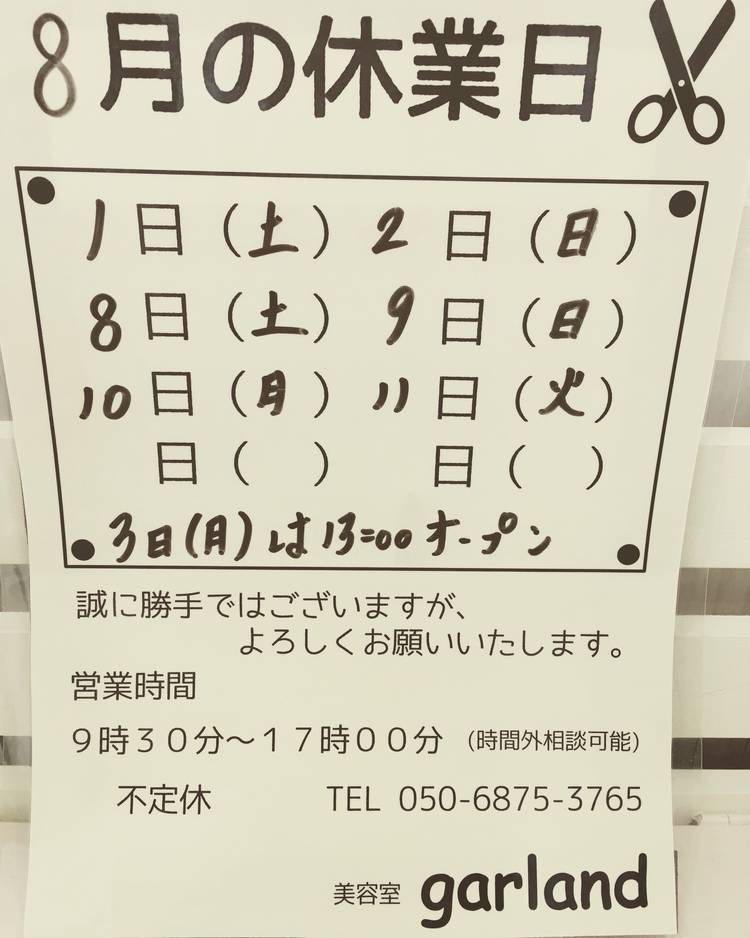 8月の休業日
1日（土） 2日（日）
8日（土） 9日（日）
10日（月） 11日（火）
日（　） 日（　）
3日(月)は13:00オープン
誠に勝手ではございますが、
よろしくお願いいたします。
営業時間
９時３０分〜１７時００分 (時間外相談可能)
不定休 TEL 050-6875-3765
美容室 garland